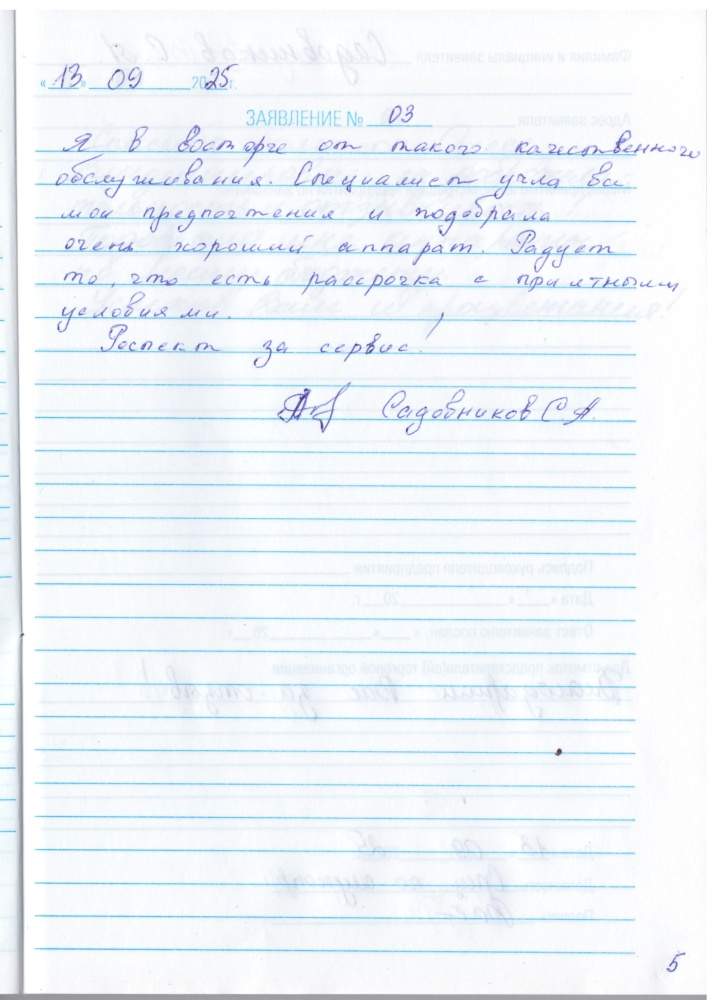 «13» 09 2025г.
ЗАЯВЛЕНИЕ № 03
Я в восторге от такого качественного
обслуживания. Специалист учла все
мои предпочтения и подобрала
очень хороший аппарат. Радует
то, что есть рассрочка с приятными
условиями.
Респект за сервис!
Садовников С.А.
5